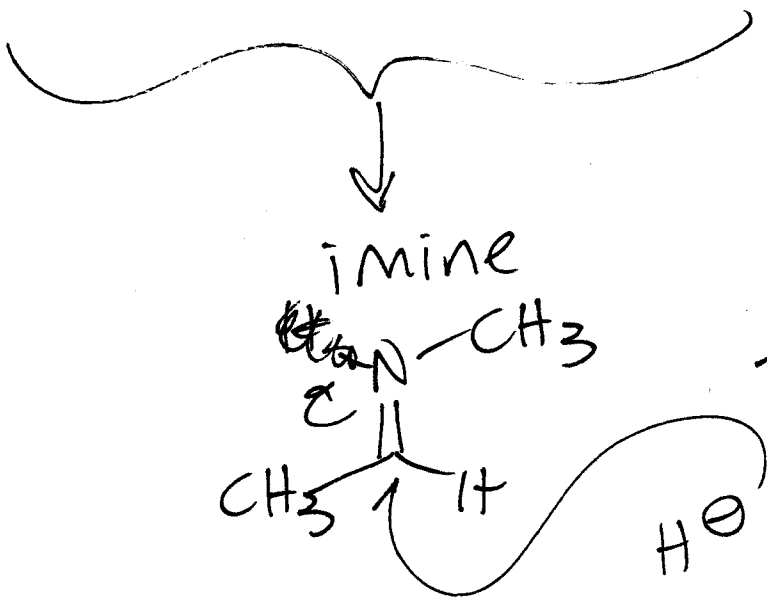 imine
N-CH3
CH3 H
H⊖